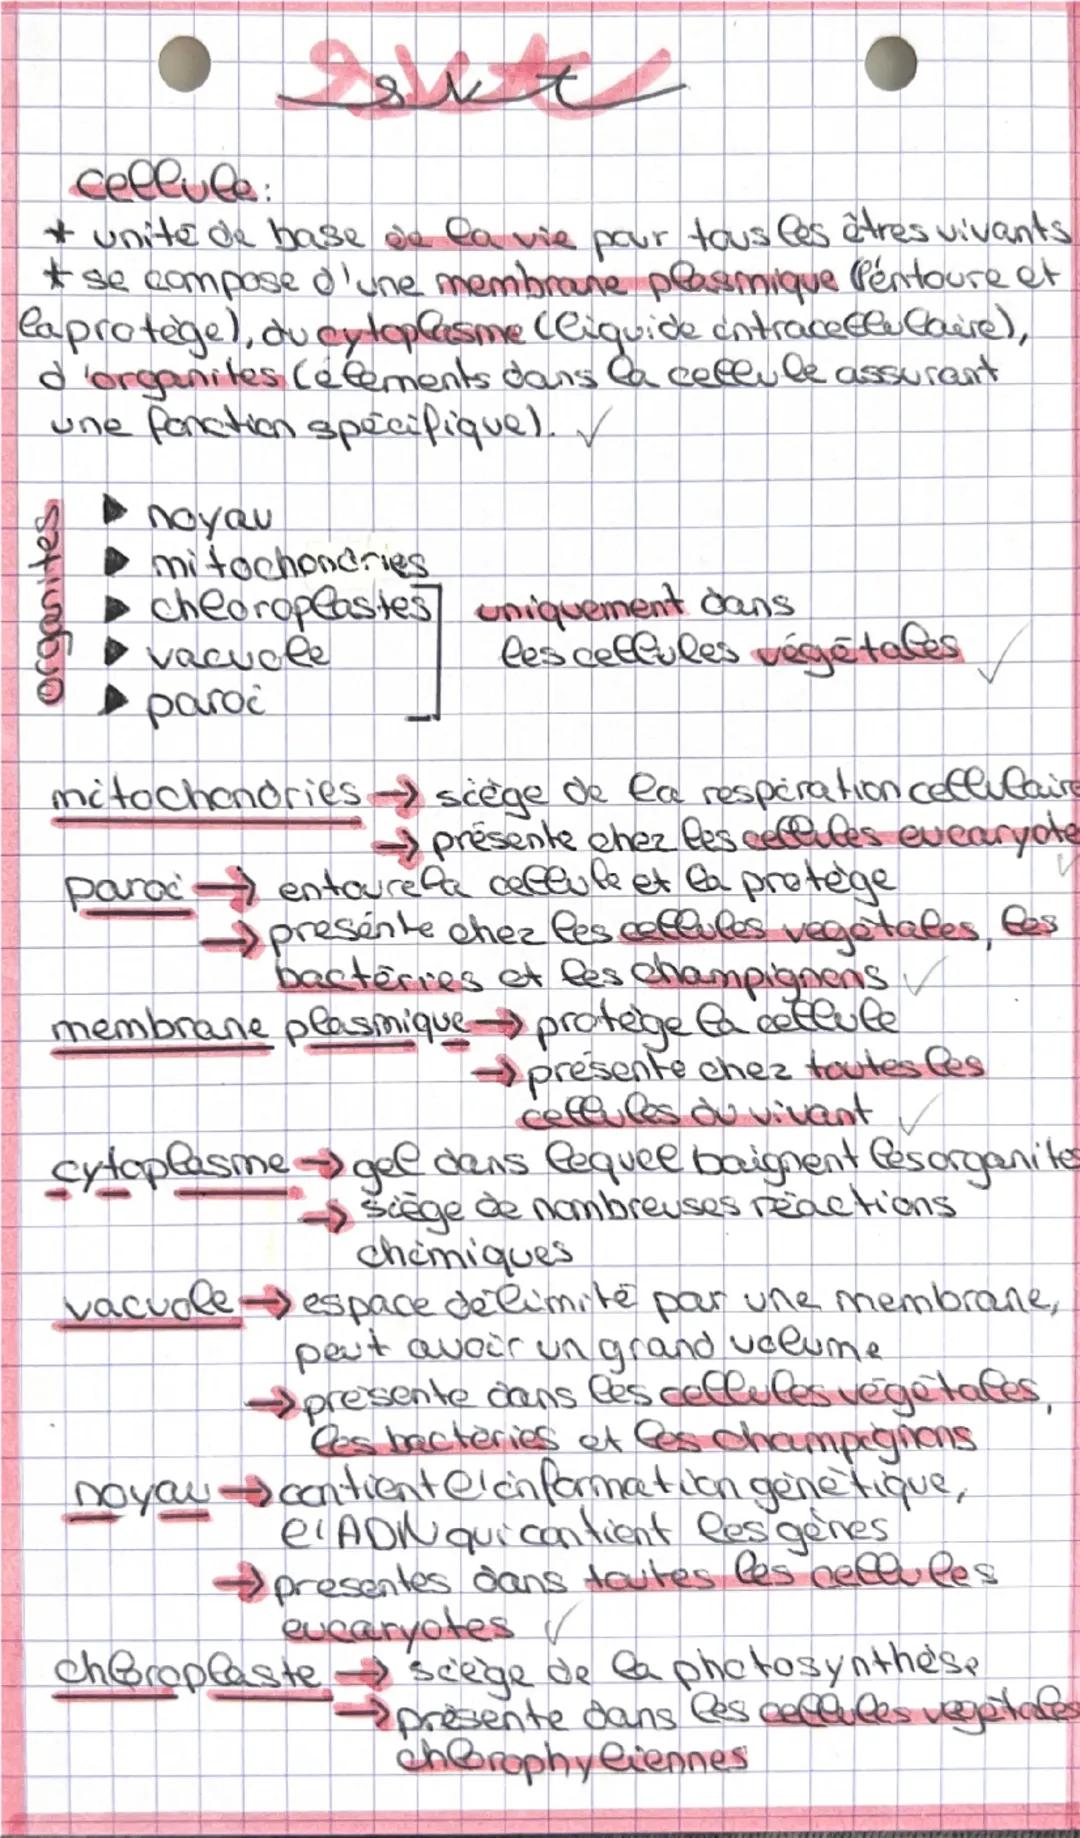 svt
cellule:
* unité de base de la vie pour tous les êtres vivants
* se compose d'une membrane plasmique (l'entoure et
la protège), du cytoplasme (liquide intracellulaire),
d'organites (élements dans la cellule assurant
une fonction spécifique). ✓
organites
▶ noyau
▶ mitochondries
▶ chloroplastes
▶ vacuole
▶ paroi
uniquement dans
les cellules végétales ✓
mitochondries → siège de la respiration cellulaire
→ présente chez les cellules eucaryote
paroi → entoure la cellule et la protège
→ présente chez les cellules vegétales, les
bactéries et les champignons ✓
membrane plasmique → protège la cellule
→ présente chez toutes les
cellules du vivant ✓
cytoplasme → gel dans lequel baignent les organites
→ siège de nombreuses réactions
chimiques
vacuole → espace délimité par une membrane,
peut avoir un grand volume
→ présente dans les cellules végétales,
les bactéries et les champignons
noyau → contient l'information génétique,
l'ADN qui contient les gènes
→ presentes dans toutes les cellules
eucaryotes ✓
chloroplaste → siège de la photosynthèse
→ présente dans les cellules vegétales
chlorophyliennes